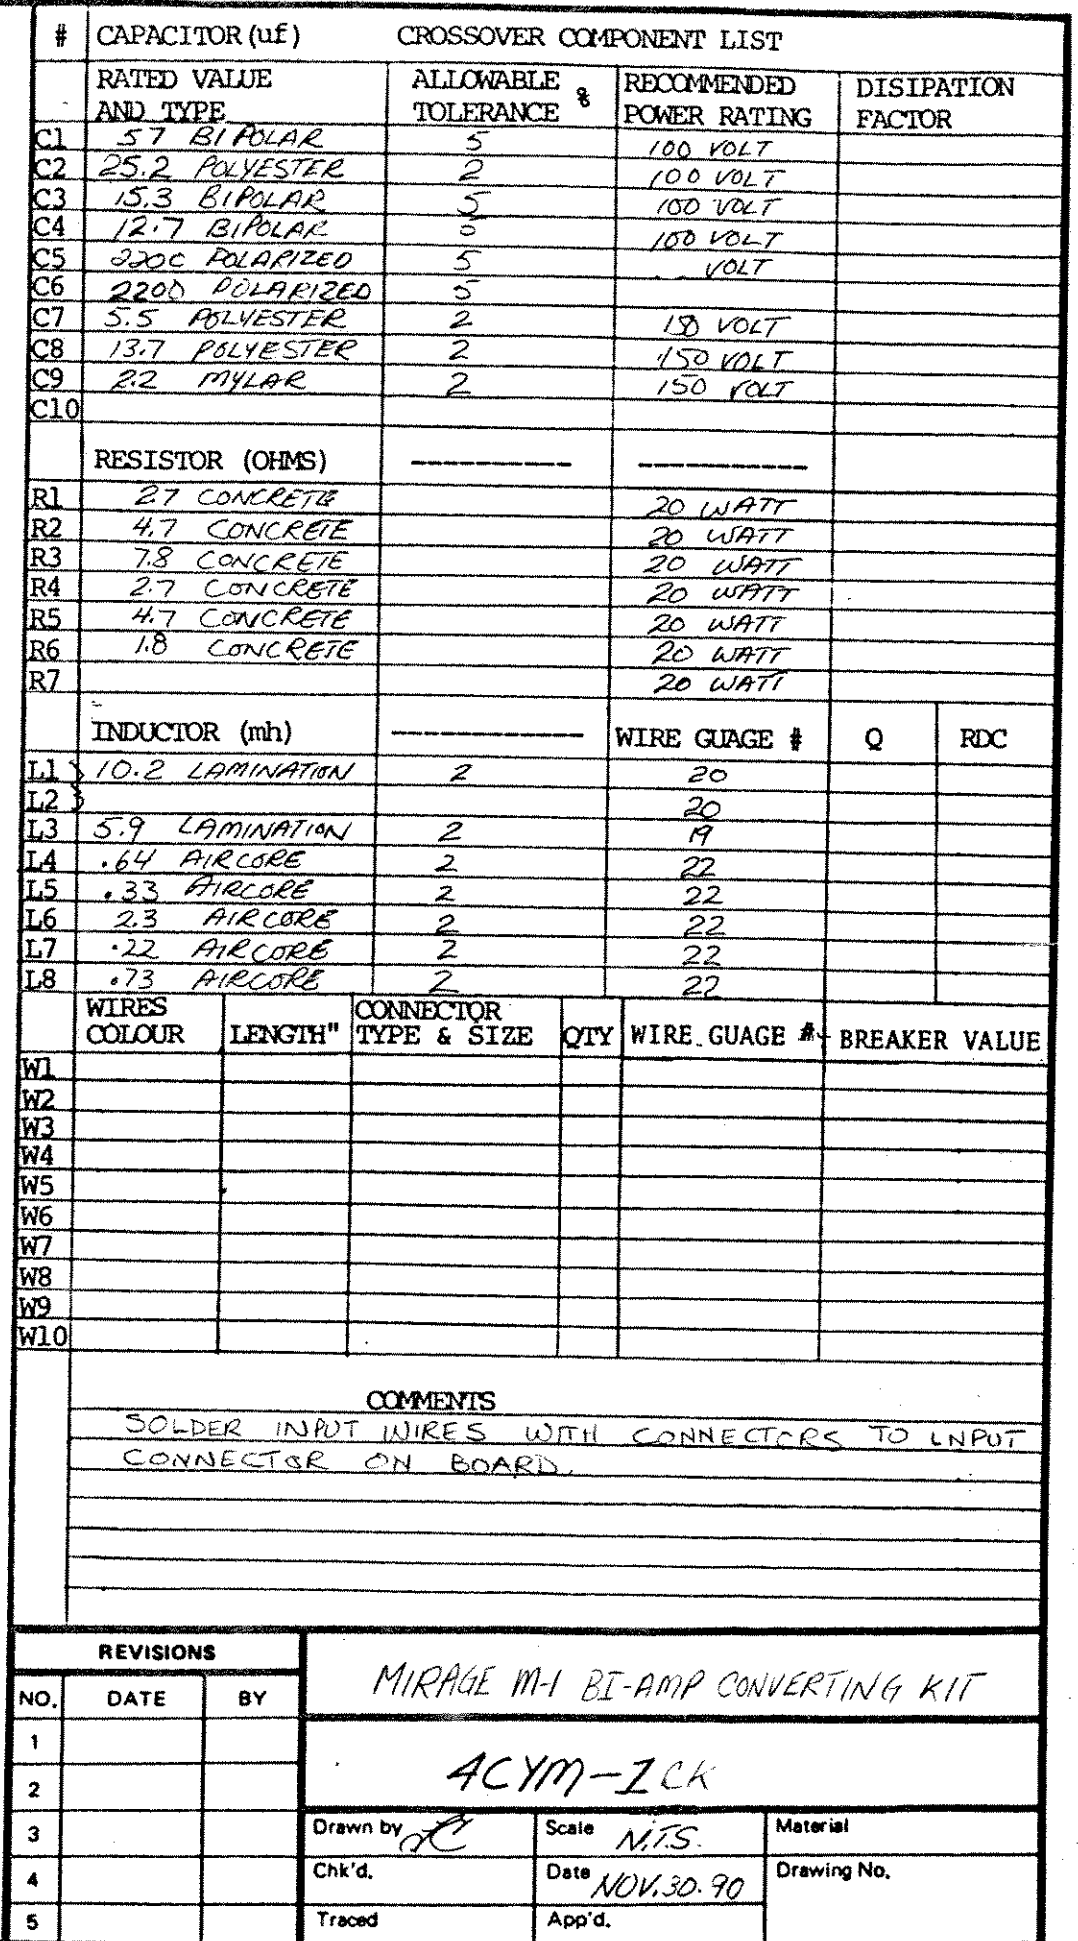 # CAPACITOR (uf) CROSSOVER COMPONENT LIST
RATED VALUE AND TYPE ALLOWABLE TOLERANCE % RECOMMENDED POWER RATING DISIPATION FACTOR
C1 57 BIPOLAR 5 100 VOLT
C2 25.2 POLYESTER 2 100 VOLT
C3 15.3 BIPOLAR 5 100 VOLT
C4 12.7 BIPOLAR 5 100 VOLT
C5 2200 POLARIZED 5 VOLT
C6 2200 POLARIZED 5
C7 5.5 POLYESTER 2 150 VOLT
C8 13.7 POLYESTER 2 150 VOLT
C9 2.2 MYLAR 2 150 VOLT
C10
RESISTOR (OHMS) ----------- ------------
R1 27 CONCRETE 20 WATT
R2 4.7 CONCRETE 20 WATT
R3 7.8 CONCRETE 20 WATT
R4 2.7 CONCRETE 20 WATT
R5 4.7 CONCRETE 20 WATT
R6 1.8 CONCRETE 20 WATT
R7 20 WATT
INDUCTOR (mh) ------------- WIRE GUAGE # Q RDC
L1 } 10.2 LAMINATION 2 20
L2 } 20
L3 5.9 LAMINATION 2 19
L4 .64 AIRCORE 2 22
L5 .33 AIRCORE 2 22
L6 2.3 AIRCORE 2 22
L7 .22 AIRCORE 2 22
L8 .73 AIRCORE 2 22
WIRES COLOUR LENGTH" CONNECTOR TYPE & SIZE QTY WIRE GUAGE # BREAKER VALUE
W1
W2
W3
W4
W5
W6
W7
W8
W9
W10
COMMENTS
SOLDER INPUT WIRES WITH CONNECTORS TO INPUT
CONNECTOR ON BOARD.
REVISIONS
NO. DATE BY
1
2
3
4
5
MIRAGE M-1 BI-AMP CONVERTING KIT
4CYM-1CK
Drawn by Scale N.T.S. Material
Chk'd. Date NOV.30.90 Drawing No.
Traced App'd.